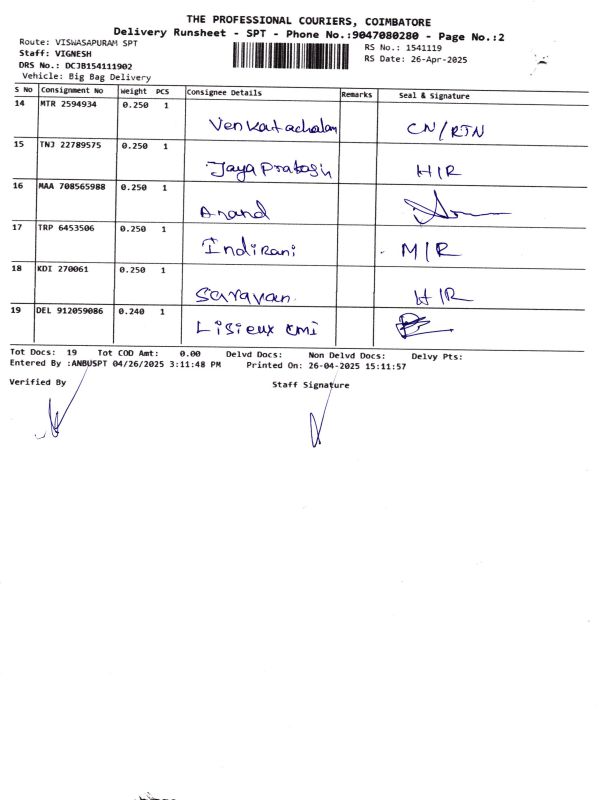 THE PROFESSIONAL COURIERS, COIMBATORE
Delivery Runsheet - SPT - Phone No.:9047080280 - Page No.:2
Route: VISWASAPURAM SPT
Staff: VIGNESH
DRS No.: DCJB154111902
Vehicle: Big Bag Delivery
RS No.: 1541119
RS Date: 26-Apr-2025
S No Consignment No Weight PCS Consignee Details Remarks Seal & Signature
14 MTR 2594934 0.250 1 Venkatachalam CN/RTN
15 TNJ 22789575 0.250 1 Jaya Prakash H/R
16 MAA 708565988 0.250 1 Anand
17 TRP 6453506 0.250 1 Indirani M/R
18 KDI 270061 0.250 1 Saravan. H/R
19 DEL 912059086 0.240 1 Lisieux CMI
Tot Docs: 19 Tot COD Amt: 0.00 Delvd Docs: Non Delvd Docs: Delvy Pts:
Entered By :ANBUSPT 04/26/2025 3:11:48 PM Printed On: 26-04-2025 15:11:57
Verified By Staff Signature